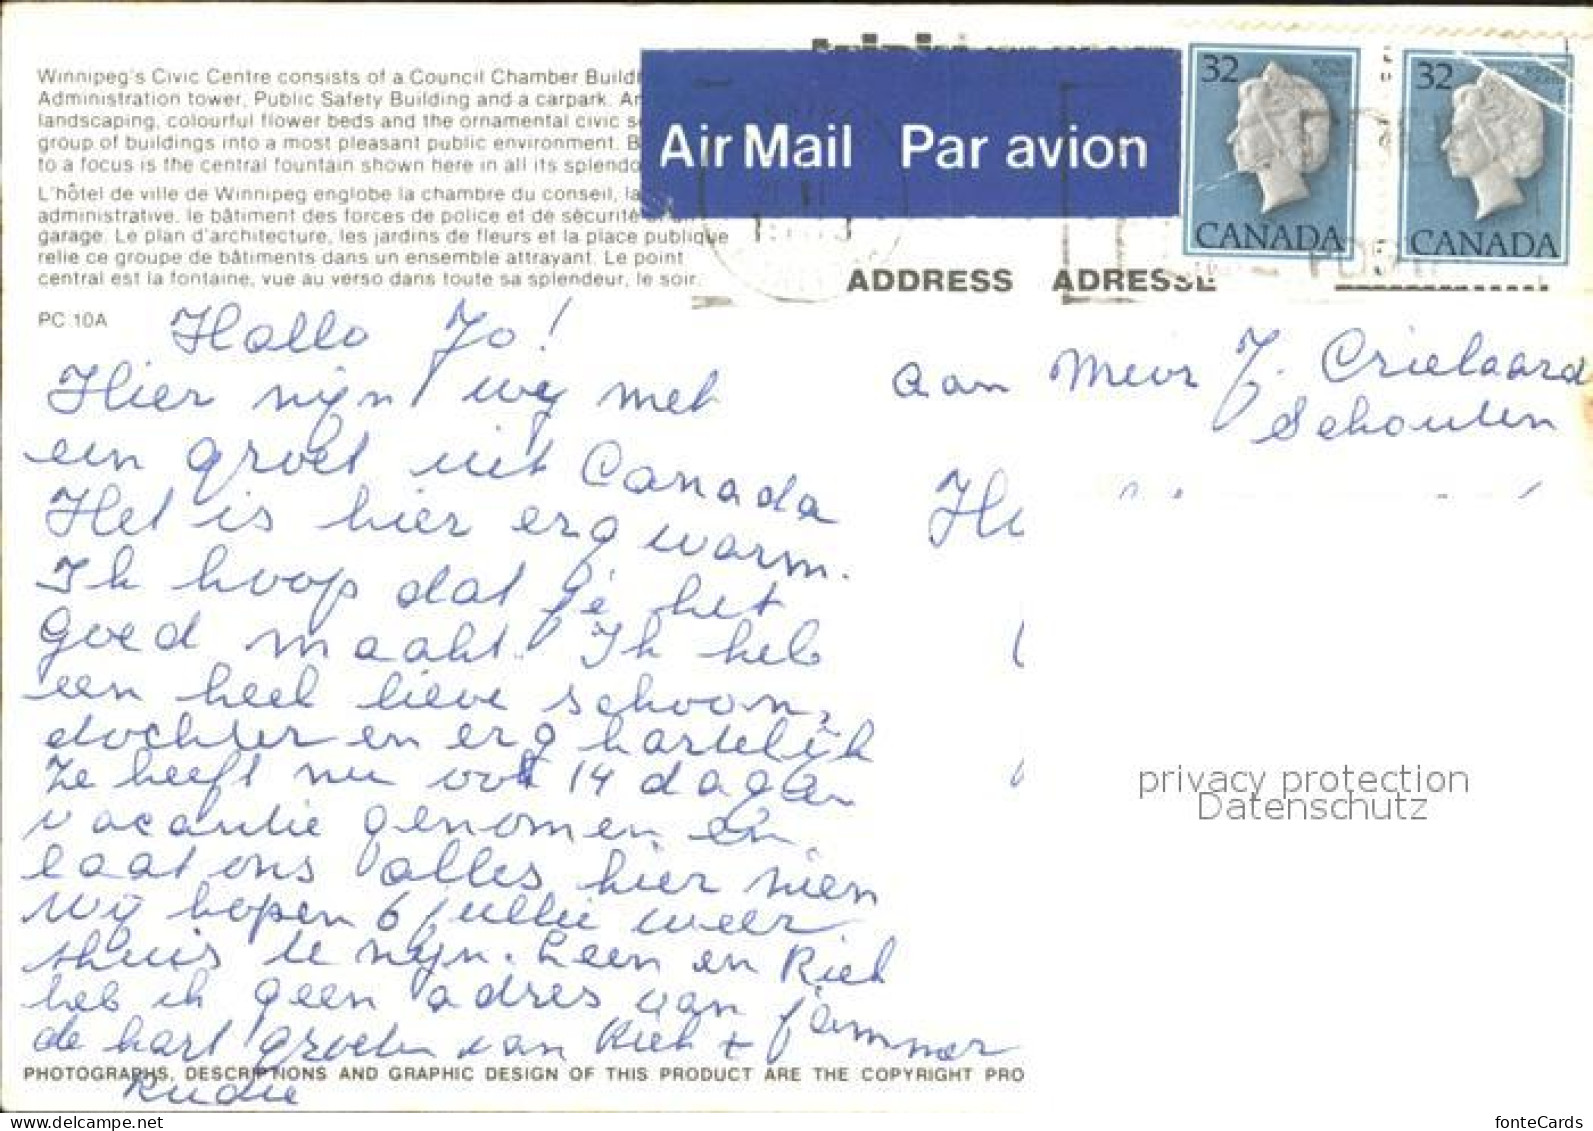 Winnipeg's Civic Centre consists of a Council Chamber Build
Administration tower, Public Safety Building and a carpark. Ar
landscaping, colourful flower beds and the ornamental civic s
group of buildings into a most pleasant public environment. B
to a focus is the central fountain shown here in all its splendo
L'hôtel de ville de Winnipeg englobe la chambre du conseil, la
administrative, le bâtiment des forces de police et de sécurité
garage. Le plan d'architecture, les jardins de fleurs et la place publique
relie ce groupe de bâtiments dans un ensemble attrayant. Le point
central est la fontaine, vue au verso dans toute sa splendeur, le soir.
PC 10A
Air Mail Par avion
32 CANADA
32 CANADA
ADDRESS ADRESSE
Hallo Jo!
Hier zijn wij met
een groet uit Canada
Het is hier erg warm.
Ik hoop dat je het
goed maakt. Ik heb
een heel lieve schoon,
dochter en erg hartelijk
Ze heeft nu ook 14 dagen
vacantie genomen en
laat ons alles hier zien
Wij hopen 6 jullie weer
thuis te zijn. Leen en Riek
heb ik geen adres van jammer
de hart groeten van Riek +
Rudie
Aan Mevr J. Crielaard
Schouten
PHOTOGRAPHS, DESCRIPTIONS AND GRAPHIC DESIGN OF THIS PRODUCT ARE THE COPYRIGHT PRO
privacy protection
Datenschutz
fonteCards